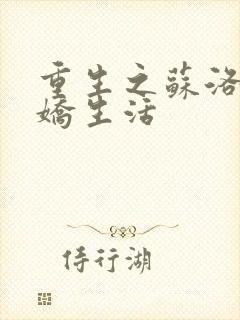 重生之蘇洛
嬌生活
侍行湖